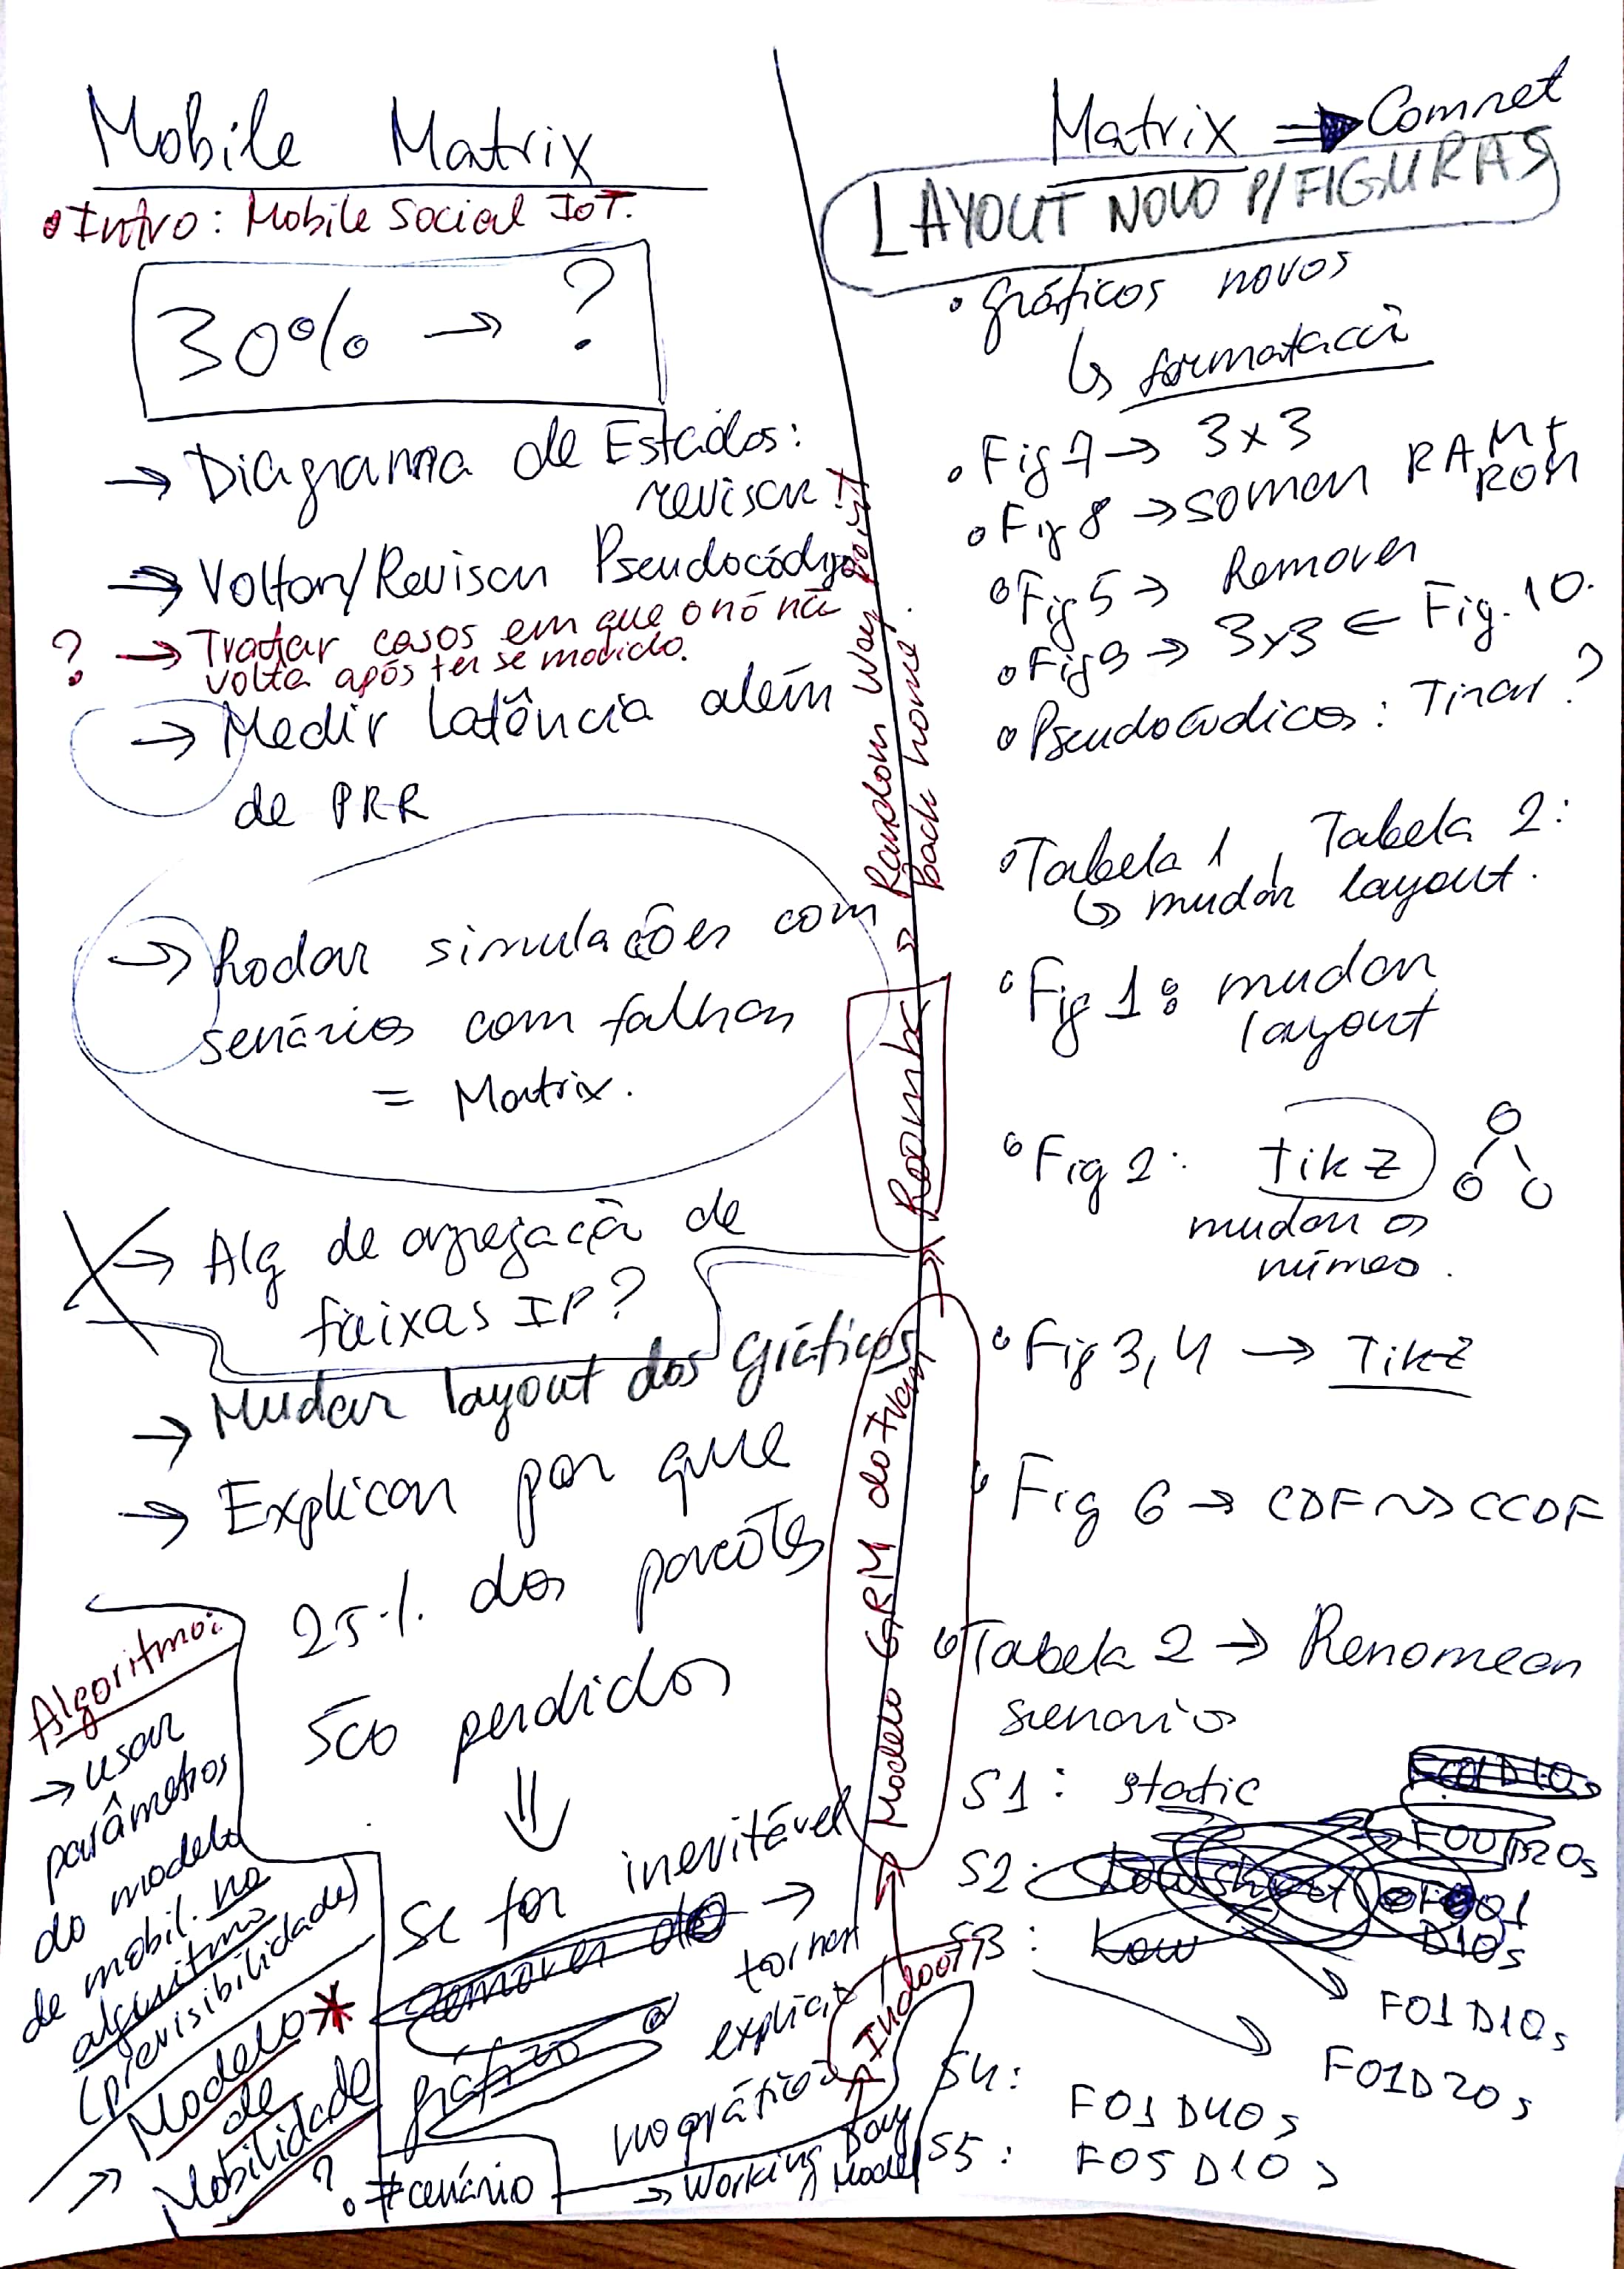 Mobile Matrix
• Intro: Mobile Social IoT.
30% → ?
→ Diagrama de Estados:
revisar!
→ Voltar/Revisar Pseudocódigo
? → Tratar casos em que o nó nã
volta após ter se movido.
→ Medir latência além
de PRR
→ Rodar simulações com
senários com falhas
= Matrix.
→ Alg de agregaçã de
faixas IP?
→ Mudar layout dos gráficos
→ Explicar por que
25% dos pacotes
são perdidos
⇓
Se for inevitável
→ tornar
explícit
no gráfico
Algoritmo:
→ usar
parâmetros
do modelo
de mobil. no
algoritmo
(previsibilidade)
→ Modelo*
de
Mobilidade
?
• # cenário
→ Working Day
Model
→ Indoor
→ Modelo GRM do Ivan
→ Roomba
→ Random Way point
back home.
Matrix ⇒ Comnet
LAYOUT NOVO P/FIGURAS
• gráficos novos
↳ formataçã
• Fig 7 → 3x3
• Fig 8 → somar RAM+
ROM
• Fig 5 → Remover
• Fig 9 → 3x3 ← Fig. 10.
• Pseudocódicos: Tirar?
• Tabela 1, Tabela 2:
↳ mudar layout.
• Fig 1: mudar
layout
• Fig 2: Tikz
mudar os
númeo.
• Fig 3,4 → Tikz
• Fig 6 → CDF ~> CCDF
• Tabela 2 → Renomear
sienarios
S1: static
S2:
F01D10s
S3:
F01D20s
S4:
F01D40s
S5: F05D10s